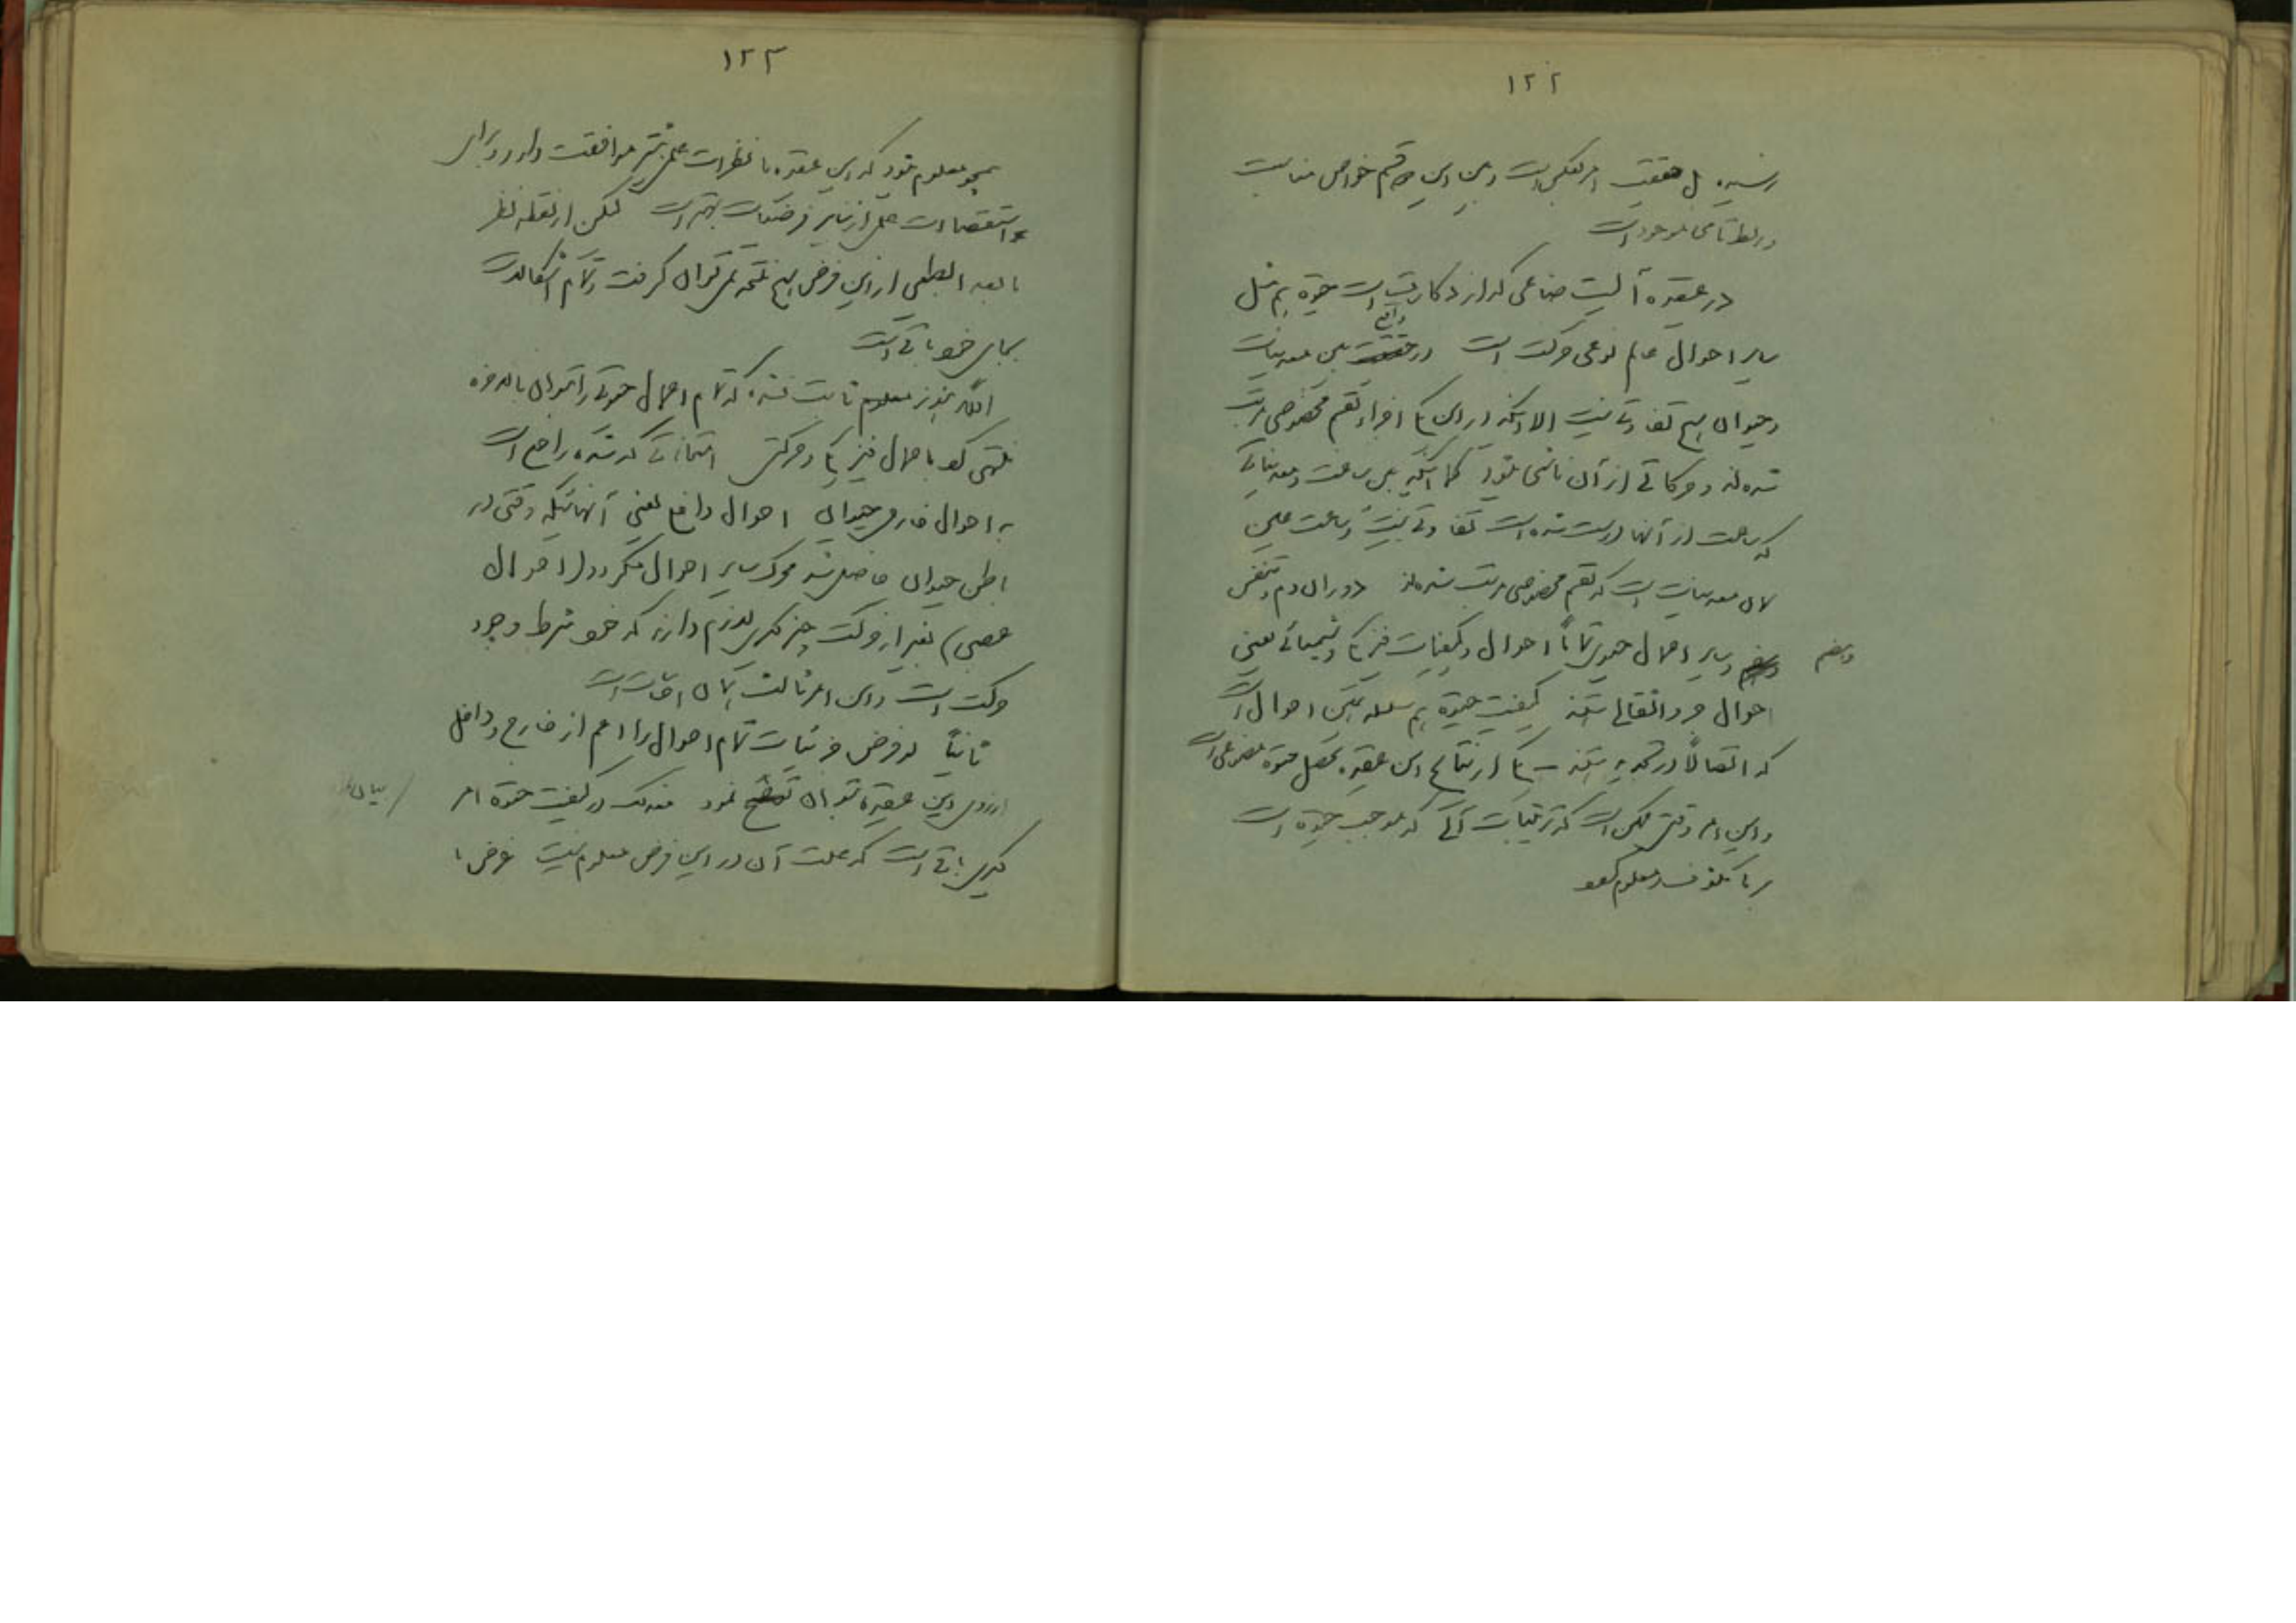 ۱۲۲
رسیده بل حقیقت امر بعکس است و بین این دو قسم خواص مناسبت
و ربط تامی موجود است
در عقیده آلیت صناعی که از دکارت است حیوة هم مثل
سایر احوال عالم نوعی حرکت است در واقع بین معدنیات
و حیوان هیچ تفاوتی نیست الا اینکه در این یکی اجزاء بقسم مخصوصی مرتب
شده‌اند و حرکاتی از آن ناشی میشود کما اینکه بین ساعت و معدنیاتی
که ساعت از آنها درست شده است تفاوتی نیست و ساعت عین
همان معدنیات است که بقسم مخصوصی مرتب شده‌اند دوران دم و تنفس
و هضم و سایر اعمال حیوی تماماً احوال و کیفیات فیزیکی و شیمیائی یعنی
احوال جر و انتقالی هستند کیفیت حیوة هم سلسله همین احوال است
که اتصالاً در تجدید هستند – یکی از نتایج این عقیده تحصیل حیوة مصنوعی است
و این امر وقتی ممکن است که ترتیبات آلی که موجب حیوة است
را مکشوف و معلوم کرد
۱۲۳
همچو معلوم میشود که این عقیده با نظرات علمی بیشتر موافقت دارد و برای
استقصاءات علمی از سایر فرضیات بهتر است لیکن از نقطه نظر
مابعد الطبیعی از این فرض هیچ نتیجه نمی‌توان گرفت و تمام اشکالات
بجای خود باقی است
اولاً هنوز ثابت نشده که تمام اعمال حیوتی را بتوان بالاخره
منتهی کرد باعمال فیزیکی و حرکتی امتحاناتی که شده راجع است
به احوال خارجی حیوان احوال داخلی یعنی آنهائیکه وقتی در
باطن حیوان حاصل شد محرک سایر احوال میگردد (احوال
عصبی) بغیر از حرکت چیز دیگری لازم دارند که خود شرط وجود
حرکت است و این امر ثالث همان احساس است
ثانیاً بر فرض جزئیات تمام احوال را اعم از خارج و داخل
از روی این عقیده بتوان بیان نمود معذلک در کیفیت حیوة امر
دیگری باقی است که علت آن در این فرض معلوم نیست غرض ما